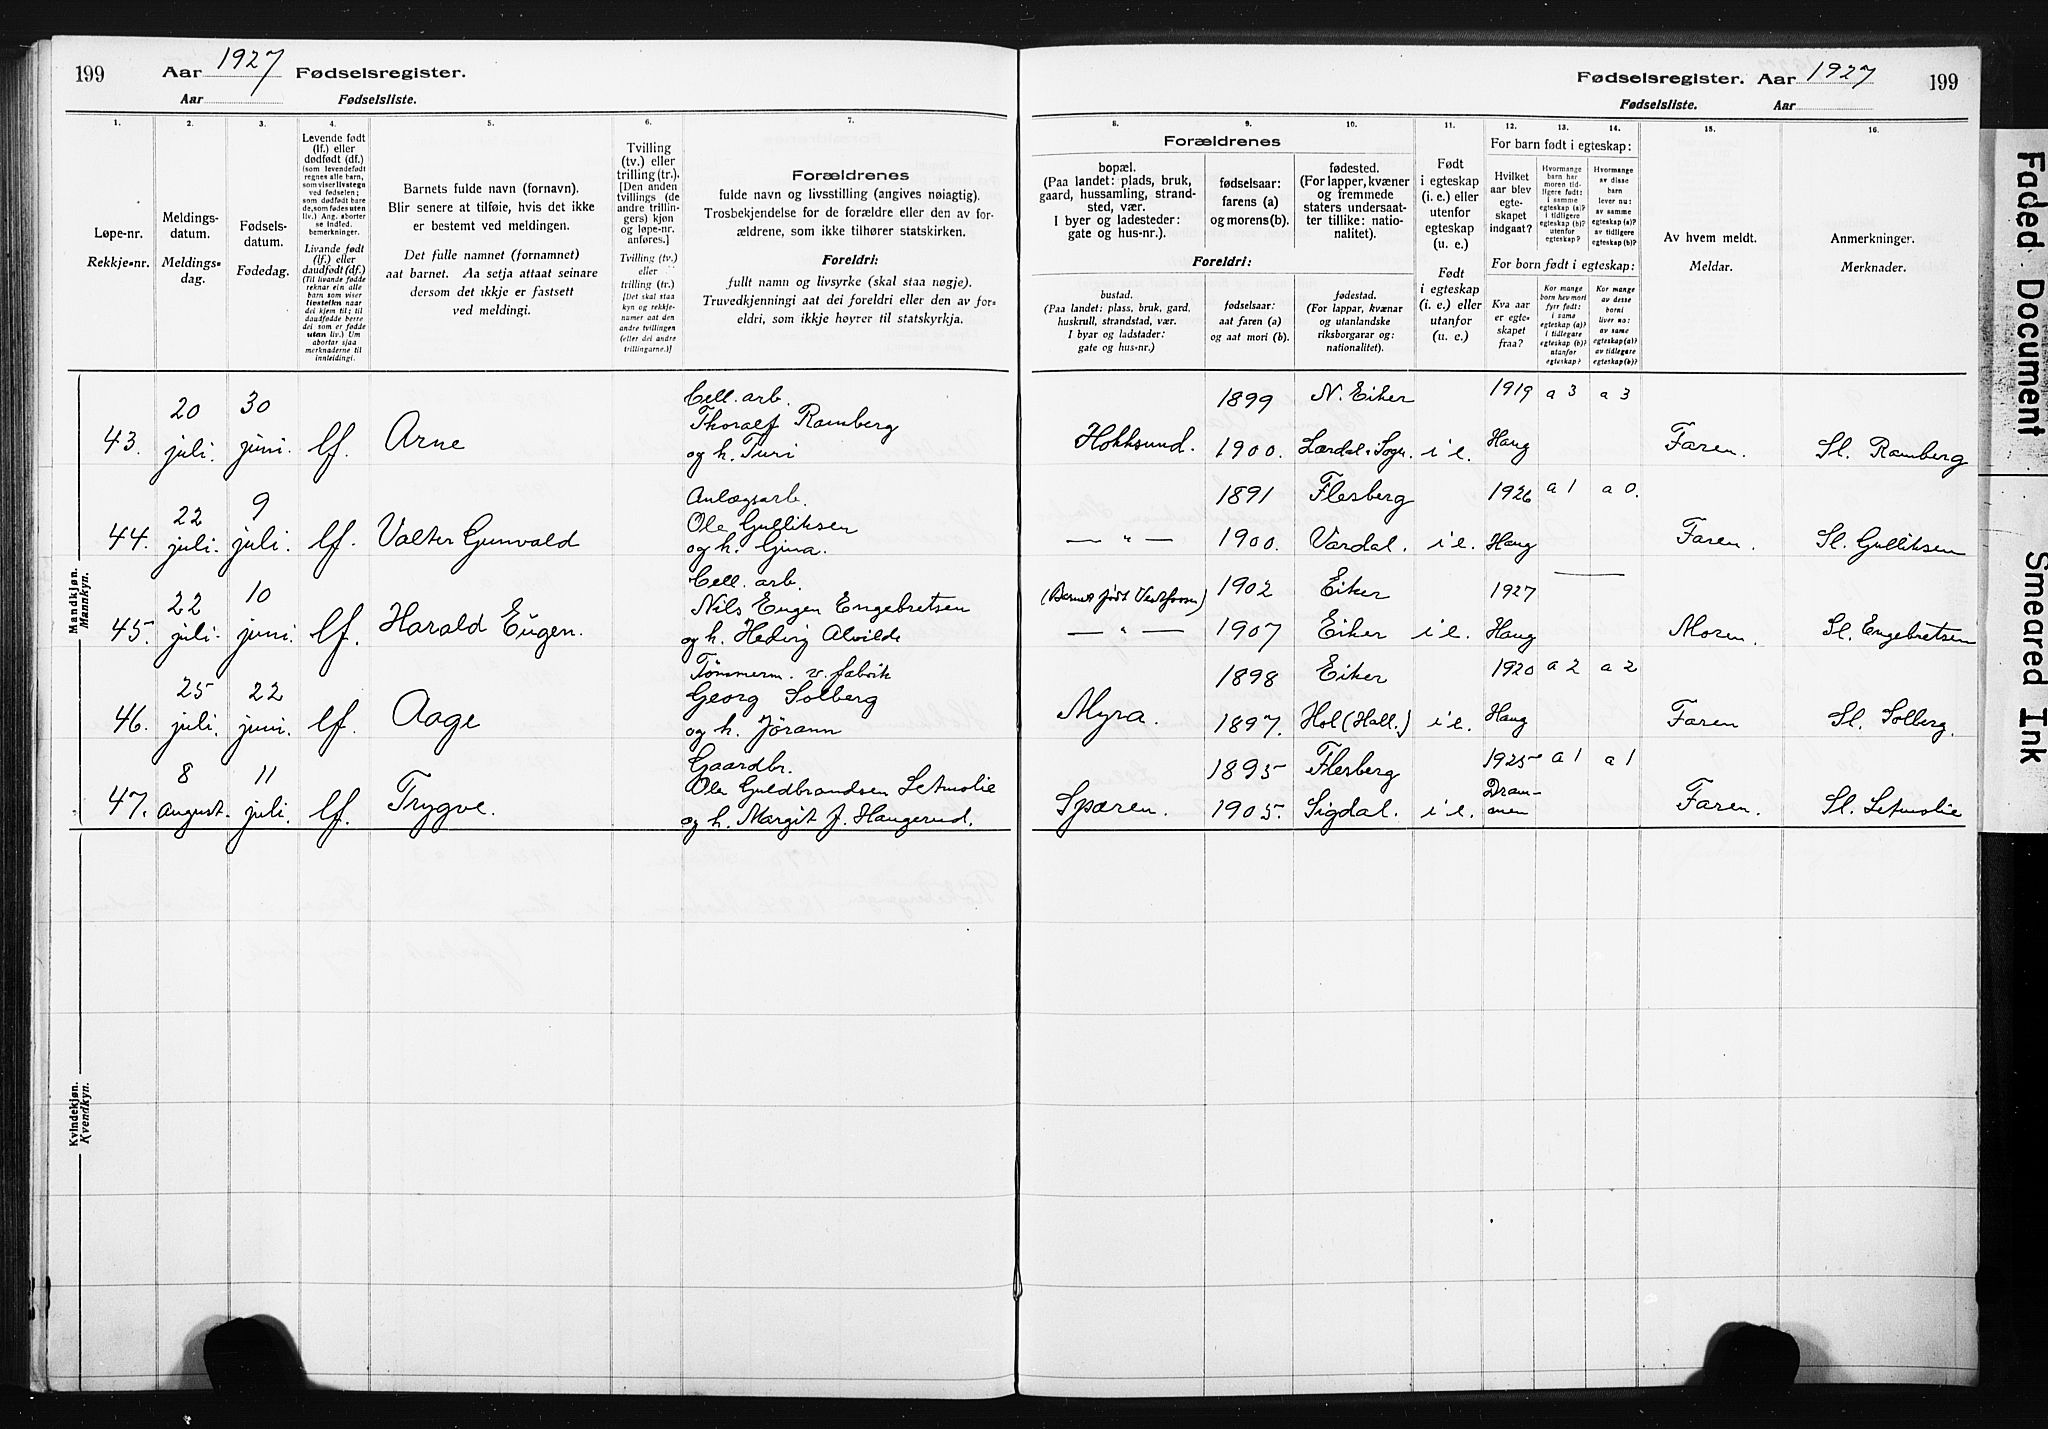 199
Aar 1927 Fødselsregister.
Aar Fødselsliste.
Fødselsregister. Aar 1927
199
Fødselsliste. Aar
1. 2. 3. 4. 5. 6. 7.
Løpe-nr.
Rekkje-nr.
Meldings-
datum.
Meldings-
dag.
Fødsels-
datum.
Fødedag.
Levende født
(lf.) eller
dødfødt (df.)
(som levendefødt
regnes alle barn,
som viser livstegn
ved fødselen;
som dødfødt bare
de, som fødes uten
liv.) Ang. aborter
se indled.
bemerkninger.
Livande født
(lf.) eller
daudfødt (df.)
(Til livande fødde
reknar ein alle
born som viser
livsteikn naar
dei kjem til; til
daudfødde berre
dei som er fødde
utan liv.) Um
abortar sjaa
merknaderne til
innleidingi.
Barnets fulde navn (fornavn).
Blir senere at tilføie, hvis det ikke
er bestemt ved meldingen.
Det fulle namnet (fornamnet)
aat barnet. Aa setja attaat seinare
dersom det ikkje er fastsett
ved meldingi.
Tvilling
(tv.) eller
trilling (tr.).
[Den anden
tvillings (de
andre trillin-
gers) kjøn
og løpe-nr.
anføres.]
Tvilling (tv.)
eller
trilling (tr.)
[Det skal staa
kyn og rekkje-
numer aat den
andre tvillingen
(eller dei andre
trillingarne.)]
Forældrenes
fulde navn og livsstilling (angives nøiagtig).
Trosbekjendelse for de forældre eller den av for-
ældrene, som ikke tilhører statskirken.
Foreldri:
fullt namn og livsyrke (skal staa nøgje).
Truvedkjenningi aat dei foreldri eller den av for-
eldri, som ikkje høyrer til statskyrkja.
8. 9. 10. 11. 12. 13. 14. 15. 16.
Forældrenes
bopæl.
(Paa landet: plads, bruk,
gaard, hussamling, strand-
sted, vær.
I byer og ladesteder:
gate og hus-nr.).
fødselsaar:
farens (a)
og morens (b).
fødested.
(For lapper, kvæner
og fremmede
staters undersaat-
ter tillike: natio-
nalitet).
Foreldri:
bustad.
(Paa landet: plass, bruk, gard,
huskrull, strandstad, vær.
I byar og ladstader:
gate og hus-nr.)
fødselsaar:
aat faren (a)
og aat mori (b).
fødestad.
(For lappar, kvænar
og utanlandske
riksborgarar og:
nationalitet).
Født
i egteskap
(i. e.) eller
utenfor
egteskap
(u. e.)
Født
i egteskap
(i. e.) eller
utanfor
(u. e.)
For barn født i egteskap:
Hvilket
aar blev
egte-
skapet
indgaat?
Hvormange
barn har
moren tid-
ligere født:
i samme
egteskap (a)?
i tidligere
egteskap (b)?
utenfor
egteskap?
Hvormange
av disse
barn
lever nu:
av samme
egteskap (a)?
av tidligere
egteskap (b)?
For born født i egteskap:
Kva aar
er egte-
skapet
fraa?
Kor mange
born hev mori
fyrr født:
i same
egteskap (a)?
i tidlegare
egteskap (b)?
utanfor
egteskap?
Kor mange
av desse
borni
liver no:
av same
egteskap (a)?
av tidlegare
egteskap (b)?
Av hvem meldt.
Meldar.
Anmerkninger.
Merknader.
Mandkjøn.
Mannkyn.
43. 20 juli. 30 juni. lf. Arne
Cell. arb.
Thoralf Ramberg
og h. Turi
Hokksund. 1899 N. Eiker 1919 a 3 a 3
1900. Lærdal i Sogn. i e. Haug Faren. Sl. Ramberg
44. 22 juli. 9 juli. lf. Valter Gunvald
Anlægsarb.
Ole Gulliksen
og h. Gina.
1891 Flesberg 1926 a 1 a 0.
— " — 1900. Vardal. i e. Haug Faren. Sl. Gulliksen
45. 22 juli. 10 juni. lf. Harald Eugen.
Cell. arb.
Nils Eugen Engebretsen
og h. Hedvig Alvilde
(Barnet født Vestfossen) 1902 Eiker 1927
— " — 1907 Eiker i e. Haug Moren. Sl. Engebretsen
46. 25 juli. 22 juni. lf. Aage
Tømmerm. v. fabrik
Georg Solberg
og h. Jørann
1898 Eiker 1920 a 2 a 2
Myra. 1897. Hol (Hall.) i e. Haug Faren Sl. Solberg.
47. 8 August. 11 juli. lf. Trygve.
Gaardbr.
Ole Guldbrandsen Setmolie
og h. Margit J. Haugerud.
1895 Flesberg 1925 a 1 a 1
Spæren. 1905. Sigdal. i e. Dram-
men Faren. Sl. Setmolie
Kvindekjøn.
Kvendkyn.
Faded Document
Smeared Ink